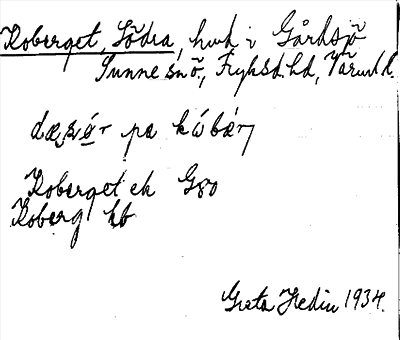 Koberget, Södra, hmd i Gårdsjö
Sunne sn ö., Fryksd. hd, Värml. l.
pa kobær
Koberget ek G80
Koberg hb
Greta Hedin 1934.